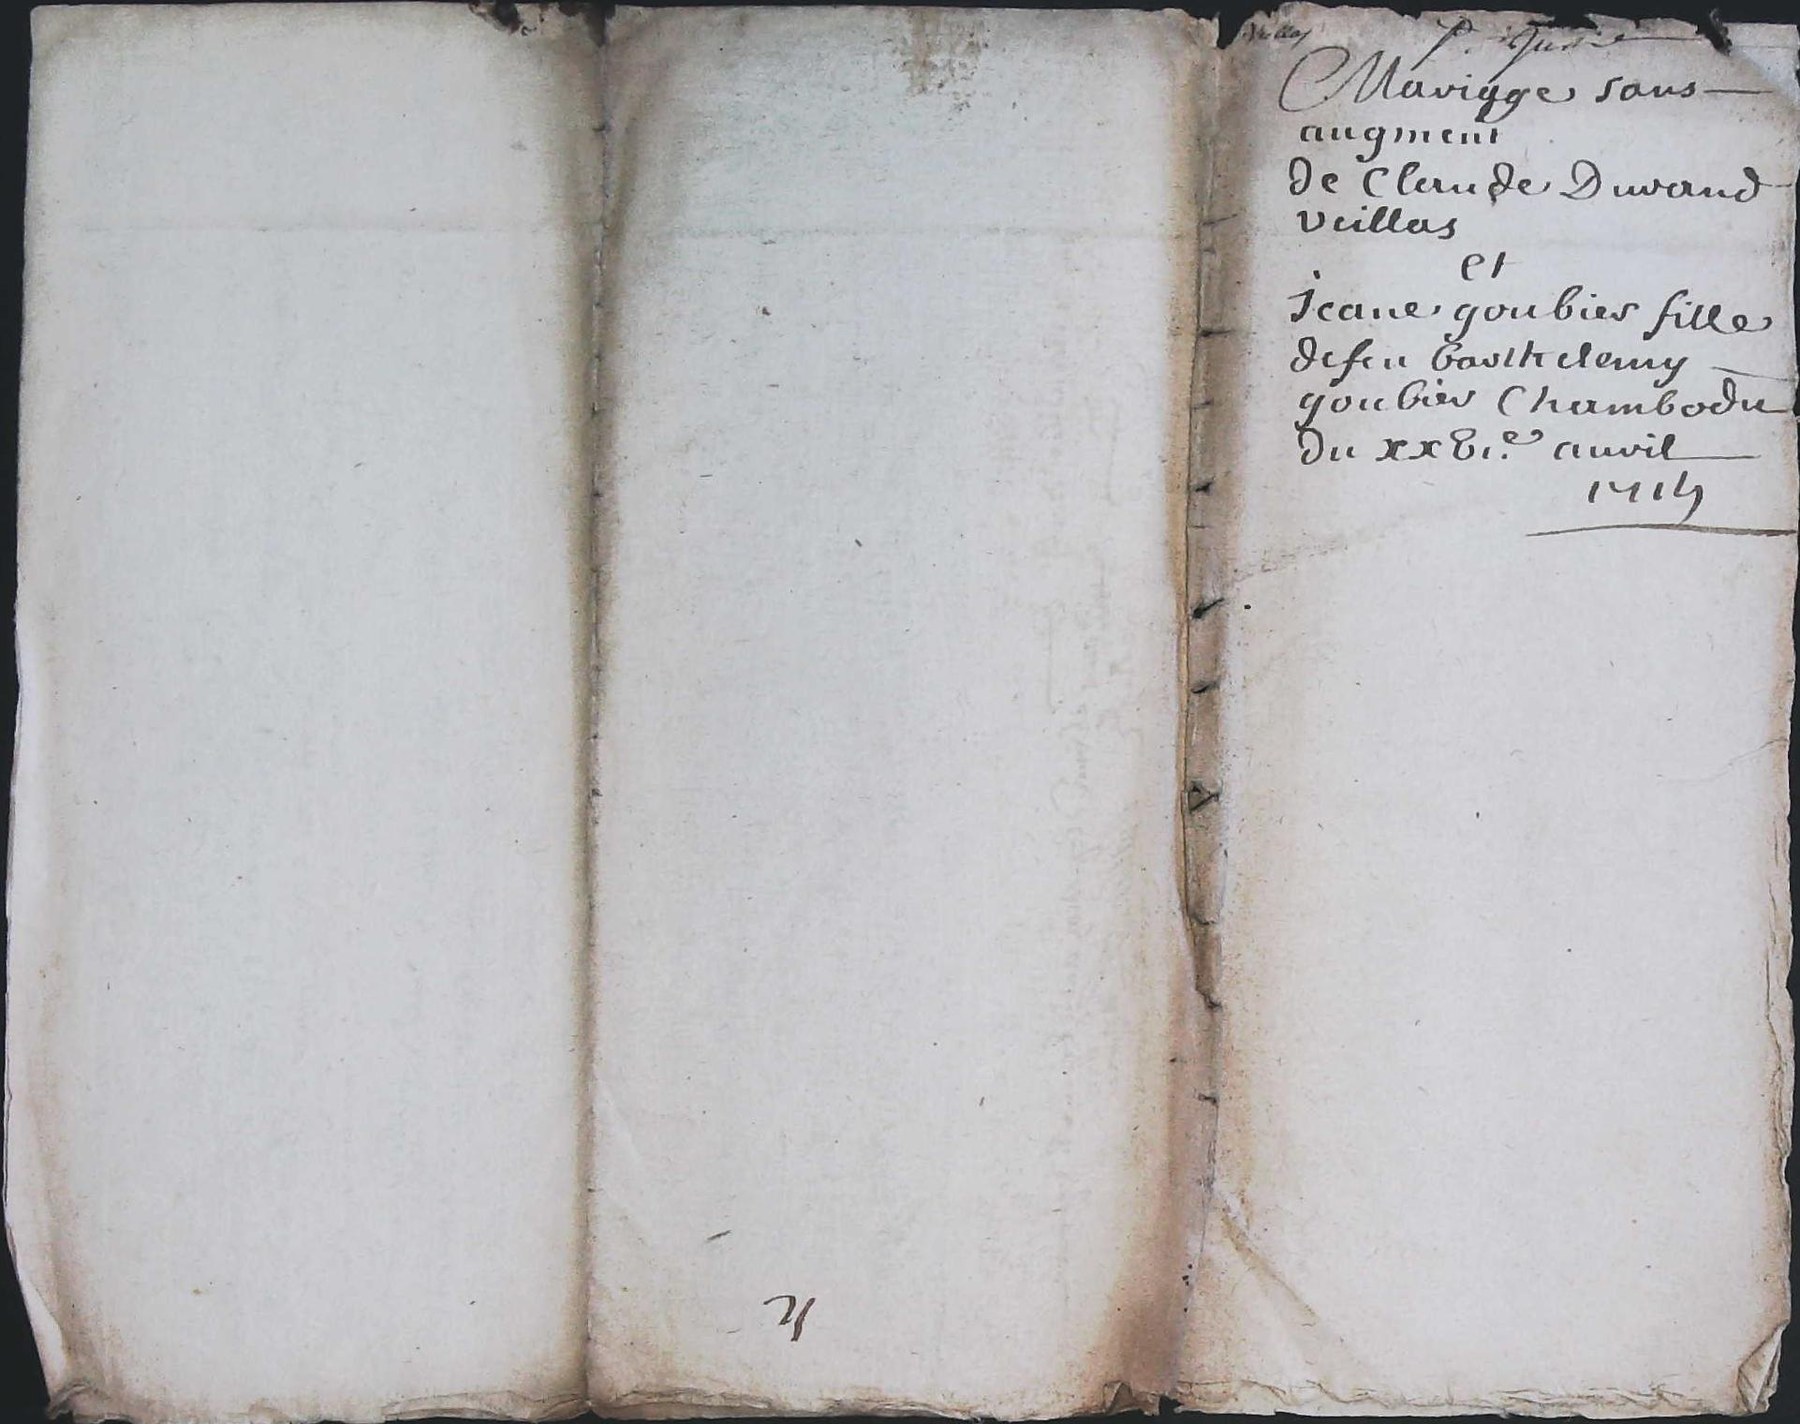 Mariage sans
augment
de Claude Durand
veillas
et
jeane goubier fille
de feu barthelemy
goubier Chambodu
du xxvi.e auril